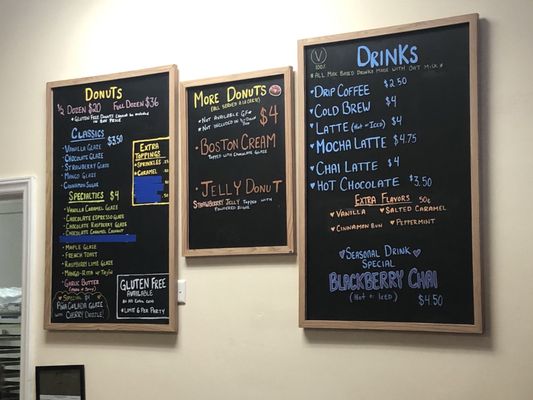 DONUTS
½ DOZEN $20 FULL DOZEN $36
CLASSICS $3.50
• VANILLA GLAZE
• CHOCOLATE GLAZE
• STRAWBERRY GLAZE
• MANGO GLAZE
• CINNAMON SUGAR
SPECIALTIES $4
• VANILLA CARAMEL GLAZE
• CHOCOLATE ESPRESSO GLAZE
• CHOCOLATE RASPBERRY GLAZE
• CHOCOLATE CARAMEL COCONUT
• MAPLE GLAZE
• FRENCH TOAST
• RASPBERRY LIME GLAZE
• MANGO-RITA W/ TAJIN
• GARLIC BUTTER
SPECIAL
PIÑA COLADA GLAZE
WITH CHERRY DRIZZLE!
EXTRA
TOPPINGS
• SPRINKLES
• CARAMEL
GLUTEN FREE
AVAILABLE
* LIMIT 6 PER PARTY
MORE DONUTS
(ALL SERVED À LA CARTE)
* NOT AVAILABLE GF
* NOT INCLUDED IN ½ DOZEN
$4
BOSTON CREAM
TOPPED WITH CHOCOLATE GLAZE
JELLY DONUT
STRAWBERRY JELLY TOPPED WITH
POWDERED SUGAR
V
100%
DRINKS
* ALL MILK BASED DRINKS MADE WITH OAT MILK *
♥ DRIP COFFEE $2.50
♥ COLD BREW $4
♥ LATTE (HOT OR ICED) $4
♥ MOCHA LATTE $4.75
♥ CHAI LATTE $4
♥ HOT CHOCOLATE $3.50
EXTRA FLAVORS 50¢
♥ VANILLA ♥ SALTED CARAMEL
♥ CINNAMON BUN ♥ PEPPERMINT
♥ SEASONAL DRINK ♥
SPECIAL
BLACKBERRY CHAI
(HOT OR ICED) $4.50